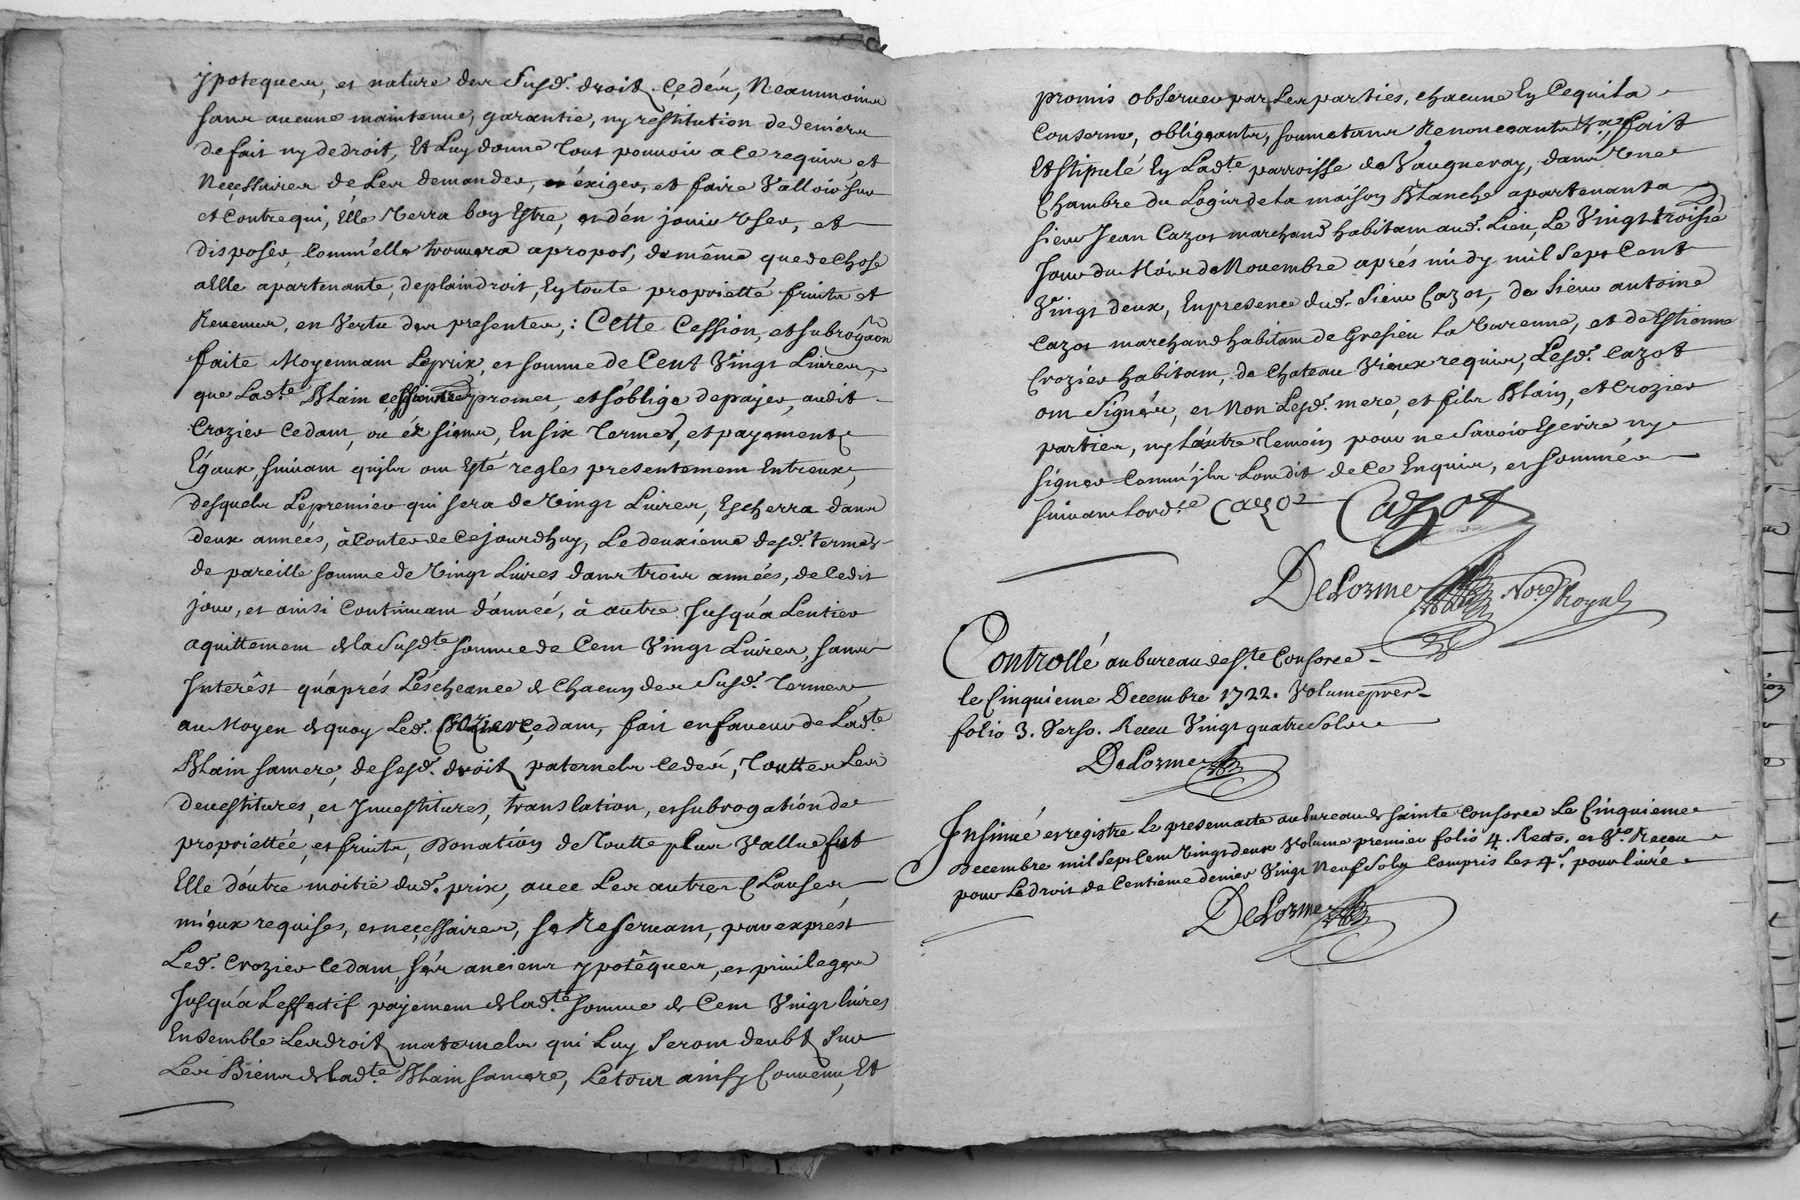 ypoteques, et nature des susd. droits cedés, Neammoins
sans aucune maintenue, garantie, ny restitution de deniers
de fait ny de droit, Et Luy donne tout pouvoir a ce requis et
Necessaires de Les demander, exiger, et faire Valloir sur
et contre qui, Elle Verra bon Estre, et d'en jouir User, et
disposer, Comm'elle trouvera apropos, de même que de Chose
a Elle apartenante, de plain droit, En toute proprietté fruits et
Revenus, en Vertu des presentes, : Cette Cession, et subrogãon
faite Moyennam Le prix, et somme de Cent Vingt Livres,
que Lad.te Blain cessionnre promet, et s'oblige de payer, audit
Crozier Cedam, ou éx siens, En six Termes, et payements
Egaux, suivam qu'ils om Esté regles presentemem Entreux,
desquels Le premier qui sera de Vingt Livres, Escherra dans
deux années, à Conter de Cejourdhuy, Le deuxieme desd. termes
de pareille somme de Vingt Livres dans trois années, de Cedit
jour, et ainsi Continuam d'année, à autre Jusqu'a Lentier
aquittemem de la susd.te somme de Cem Vingt Livres, sans
Interêst qu'aprés Lescheance de Chacun des susd. Termes
au Moyen de quoy Led. Crozier Cedam, fait en faveur de Lad.te
Blain sa mere, de sesd. droits paternels cedés, Touttes Les
devestitures, et Investitures, translation, et subrogation de
propriettée, et fruits, Donation de Toutte plus Vallue fut
Elle d'outre moitié dud. prix, avec Les autres Clauses,
mieux requises, et necessaires, se Reservam, par exprest
Led. Crozier Cedam, sés anciens ypotêques, et privileges
Jusqu'a Leffectif payemem de lad.te somme de Cem Vingt livres
Ensemble Les droits maternels qui Luy serom deubt sur
Les Biens de lad.te Blain sa mere, Le tour ainsy Convenu, Et
promis observer par Les parties, chacune En Cequi la
Conserne, obligeants, soumetans Renoncants &a, fait
Et stipulé En Lad.te parroisse de Vaugneray, dans Une
Chambre du Logis de la maison Blanche apartenant a
sieur Jean Cazot marchand habitam aud. Lieu, Le Vingt troisie
Jour du Mois de Novembre aprés midy mil Sept Cent
Vingt deux, En presence dud. Sieur Cazot, de Sieur antoine
Cazot marchand habitam de Gresieu la Varenne, et de Estienne
Crozier habitam, de Chateau Vieux requis, Lesd. Cazot
om Signés, et Non Lesd. mere, et fils Blain, et Crozier
parties, ny L'autre Temoin pour ne Savoir Escrire ny
signer Comm'ils Lom dit de Ce Enquis, et sommés
suivam lord.ce Cazot Cazot
DeLorme No.re Royal
Controllé au bureau de S.te Consorce
le Cinquieme Decembre 1722. Volume prer
folio 3. Verso. Receu Vingt quatre Sols
DeLorme
Insinué et registre le presemt acte au bureau de sainte Consorce Le Cinquieme
Decembre mil Sept Cem Vingt deux Volume premier folio 4. Recto. et Vo. Receu
pour Le droit de Centieme denier Vingt Neuf Sols Compris Les 4s. pour livre
DeLorme